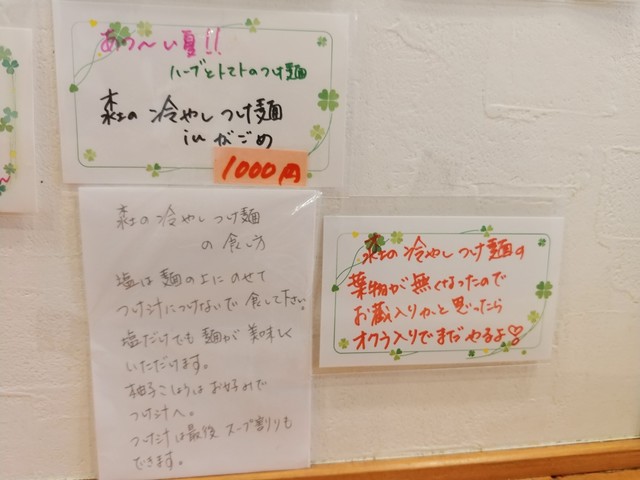 あつ〜い夏!!
ハーブとトマトのつけ麺
の 冷やし つけ麺
in がごめ
1000円
の 冷やし つけ麺
の 食し方
塩は 麺の上に のせて
つけ汁につけないで 食して下さい。
塩だけでも 麺が 美味しく
いただけます。
柚子こしょうは お好みで
つけ汁へ。
つけ汁は最後 スープ割りも
できます。
の 冷やし つけ麺の
葉物が 無くなったので
お蔵入りかと 思ったら
オクラ入りで まだ やるよ♡